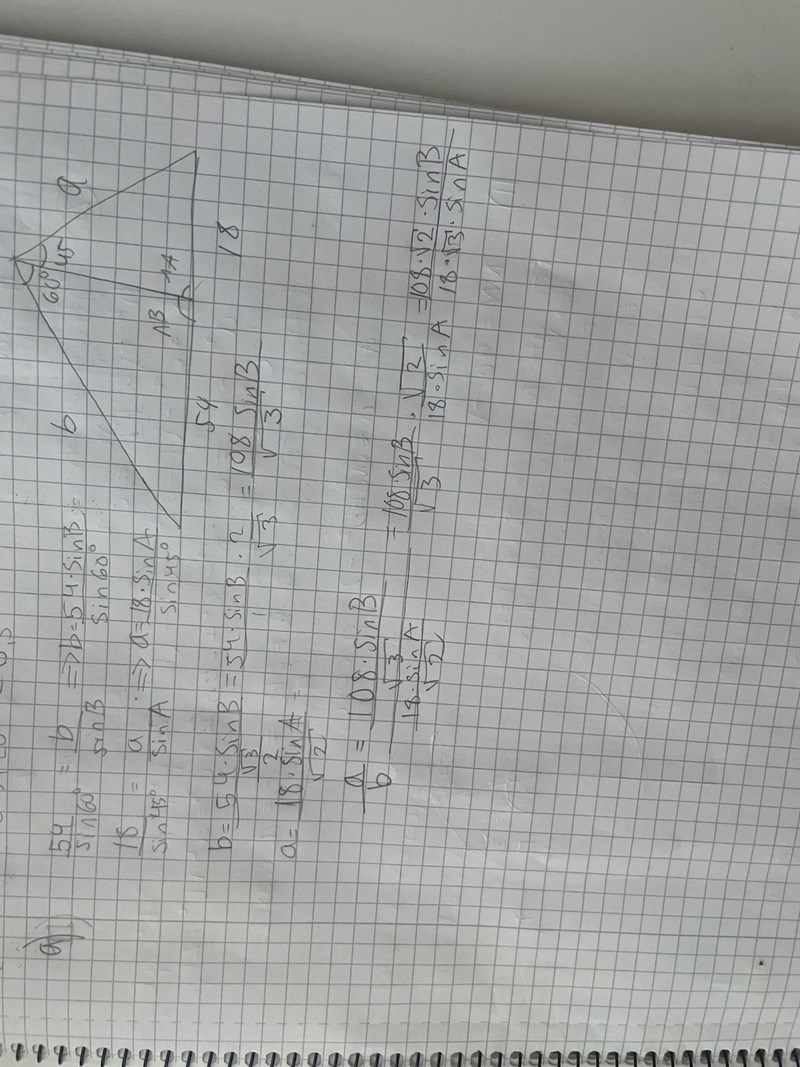 a)
60° 45°
b a
∧B ∧A
54 18
54/sin60° = b/sinB => b = 54·sinB/sin60° =
18/sin45° = a/sinA => a = 18·sinA/sin45°
b = 54·sinB/(√3/2) = 54·sinB/1 · 2/√3 = 108 sinB/√3
a = 18·sinA/√2 =
a/b = (108·sinB/√3)/(18·sinA/√2) = 108 sinB/√3 · √2/(18·sinA) = 108·√2·sinB/(18·√3·sinA)